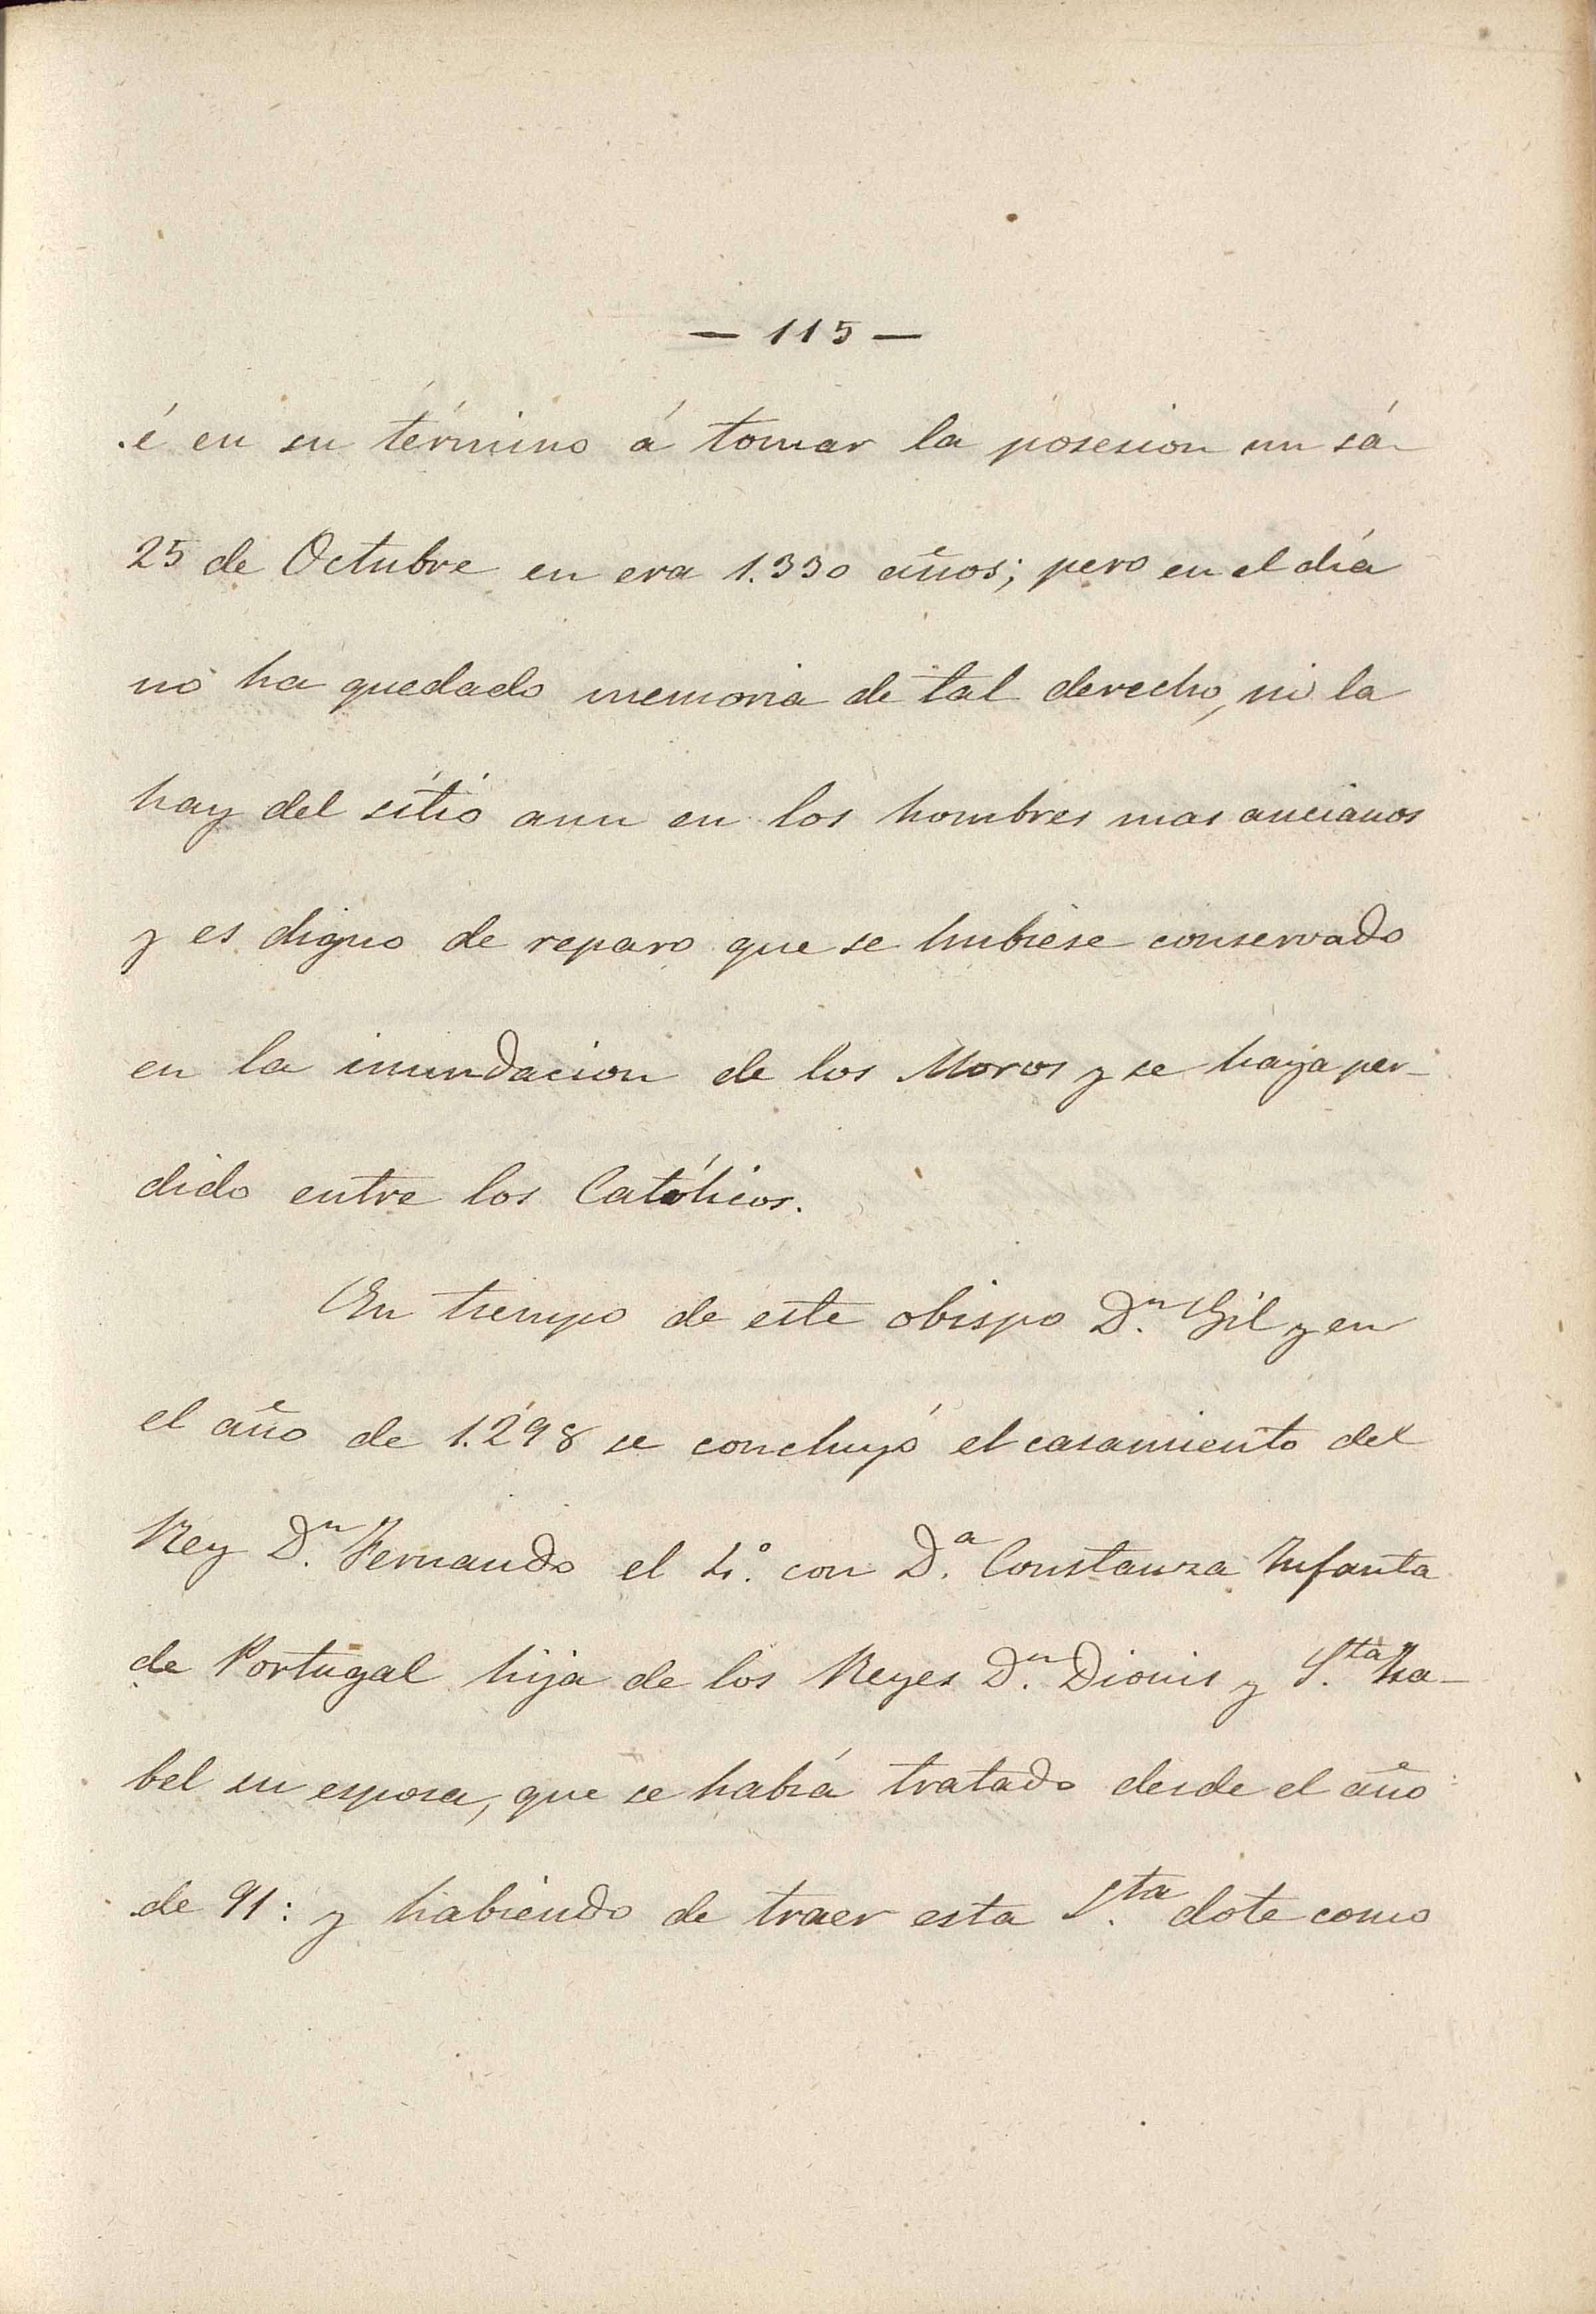 — 115 —
é en su término á tomar la posesion un sá-
25 de Octubre en era 1.330 años; pero en el día
no ha quedado memoria de tal derecho, ni la
hay del sítio aun en los hombres mas ancianos
y es digno de reparo que se hubiese conservado
en la inundacion de los Moros y se haya per-
dido entre los Católicos.
En tiempo de este obispo D.ⁿ Gil y en
el año de 1.298 se concluyó el casamiento del
Rey D.ⁿ Fernando el 4.º con D.ª Constanza Infanta
de Portugal hija de los Reyes D.ⁿ Dionis y S.ᵗᵃ Isa-
bel su esposa, que se había tratado desde el año
de 91: y habiendo de traer esta S.ᵗᵃ dote como